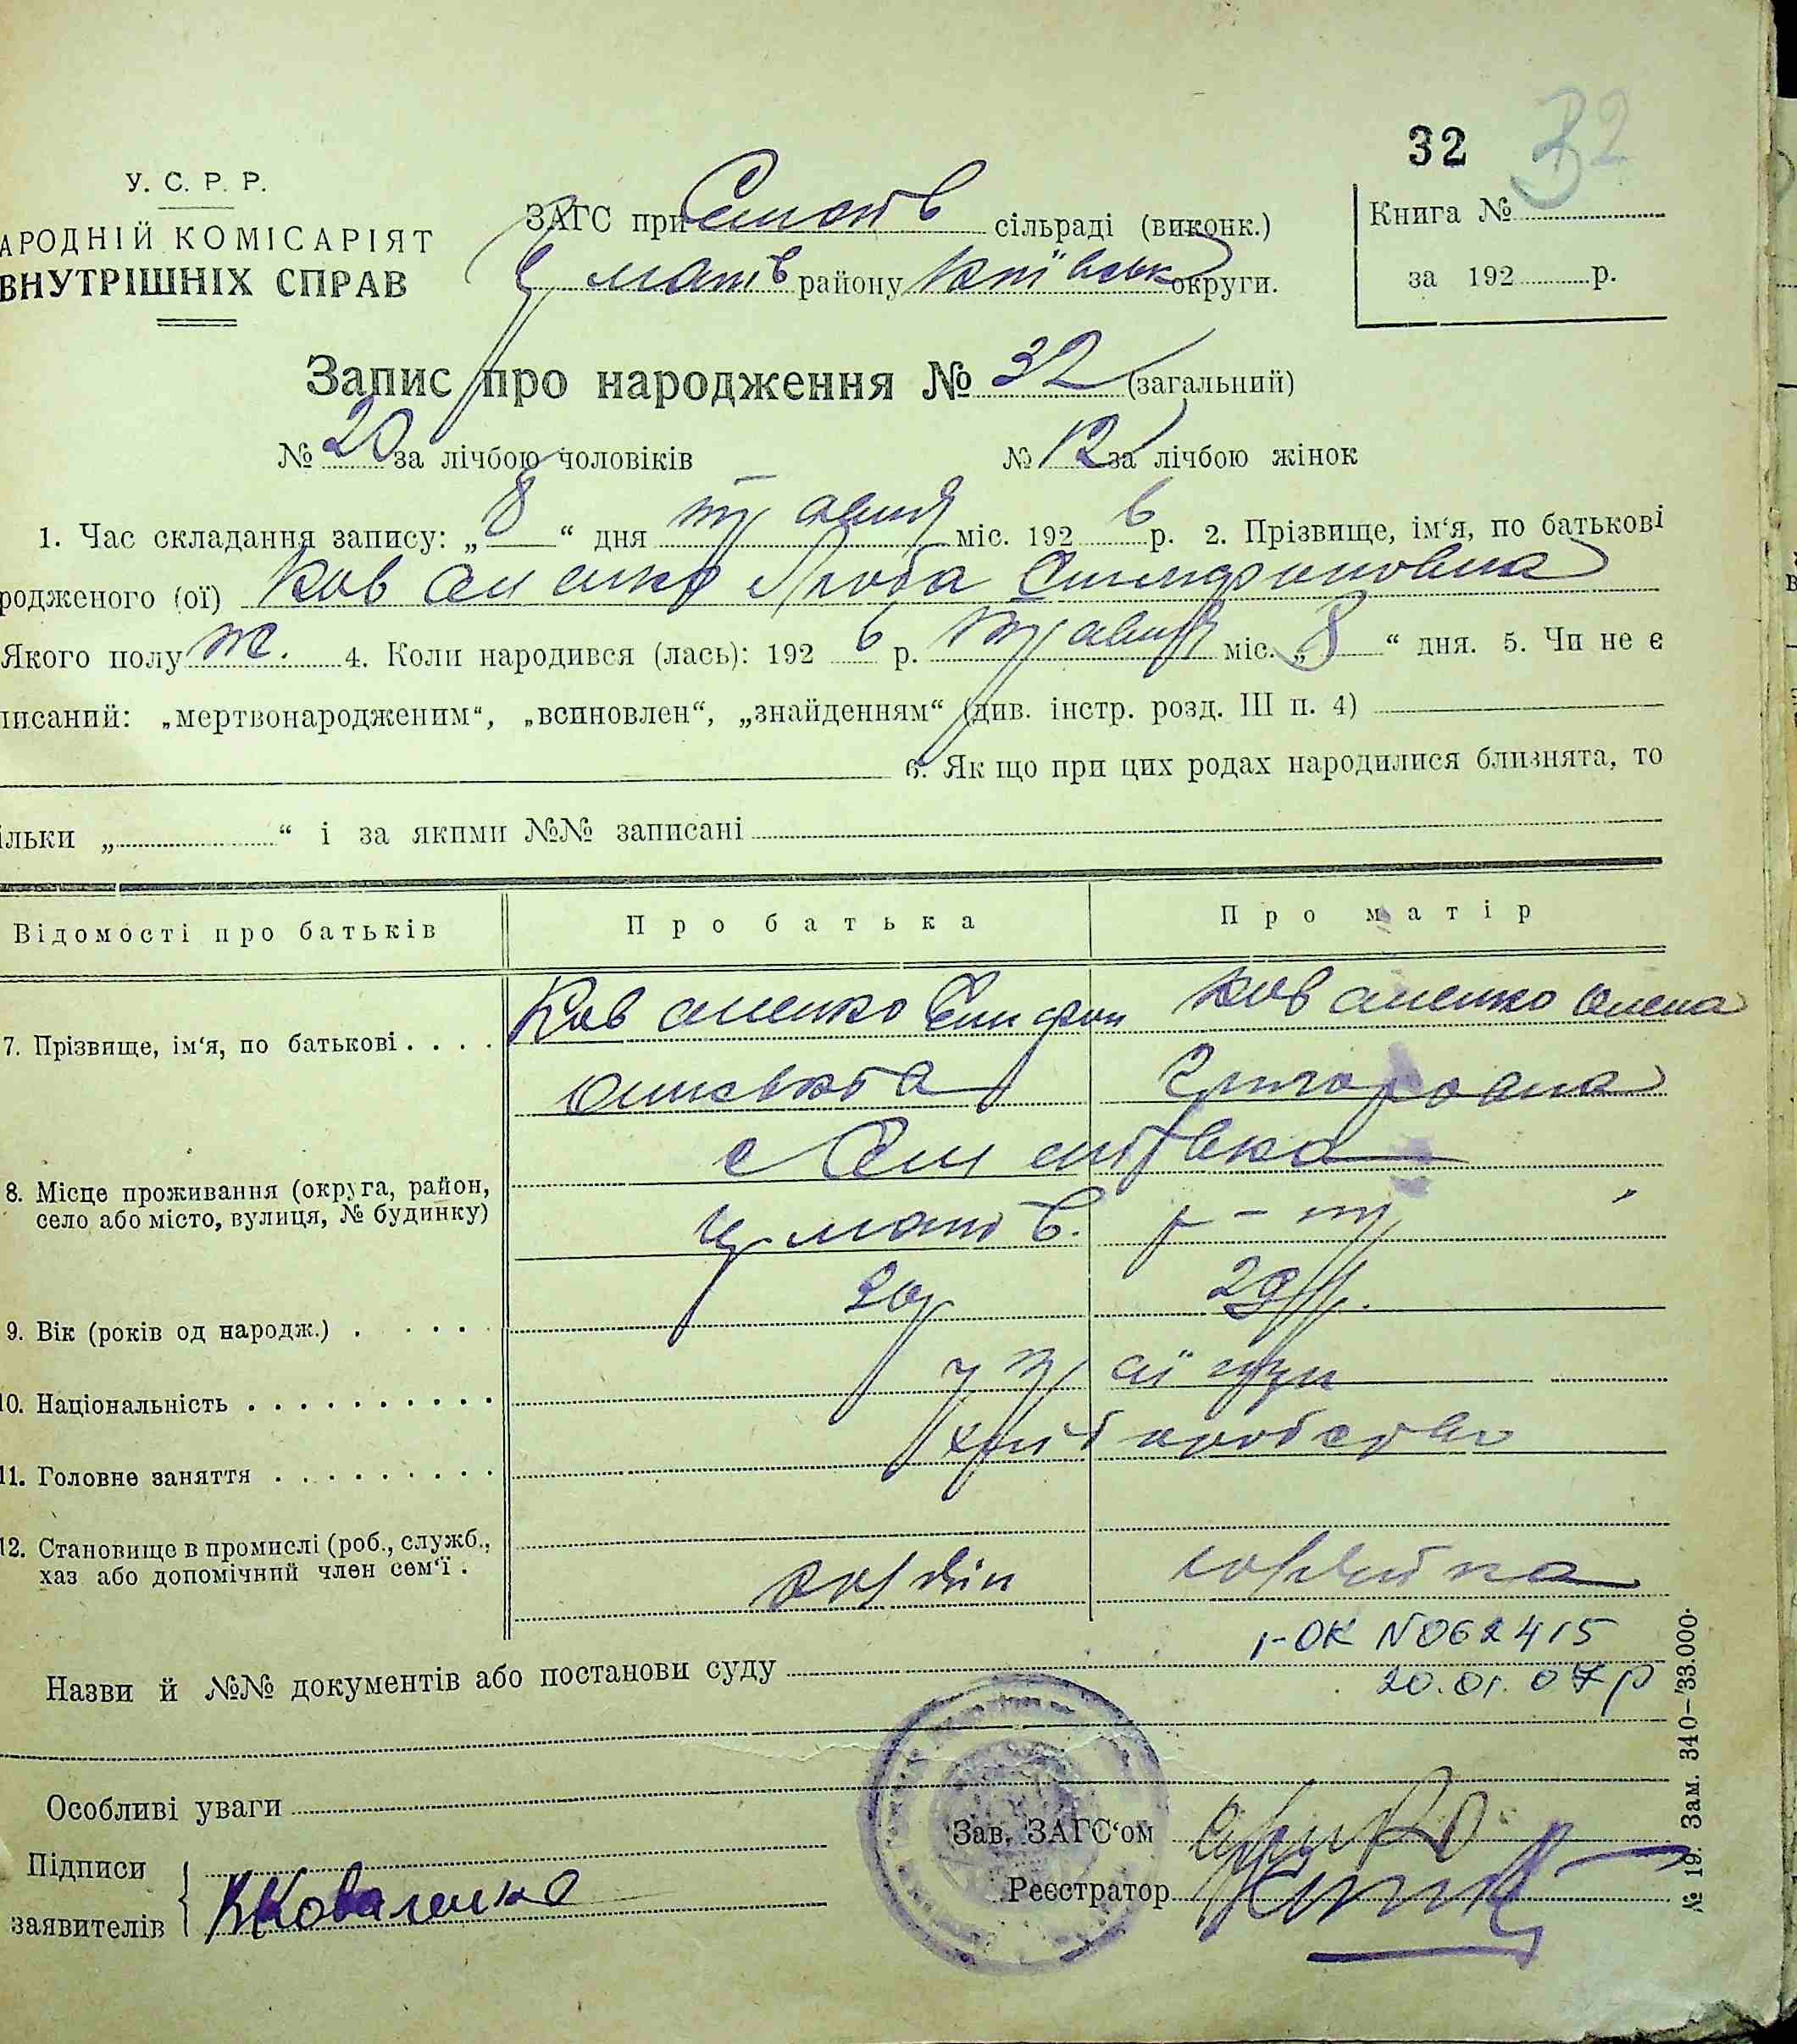 32 32
У. С. Р. Р.
АРОДНІЙ КОМІСАРІЯТ
ВНУТРІШНІХ СПРАВ
ЗАГС при сільраді (виконк.)
району Київськ округи.
Книга №
за 192 р.
Запис про народження № 32 (загальний)
№ 20 за лічбою чоловіків № 12 за лічбою жінок
1. Час складання запису: „ 8 “ дня травня міс. 192 6 р. 2. Прізвище, ім‘я, по батькові
родженого (ої) Коваленко Люба
Якого полу ж. 4. Коли народився (лась): 192 6 р. травня міс. „ 8 “ дня. 5. Чи не є
писаний: „мертвонародженим“, „всиновлен“, „знайденням“ (див. інстр. розд. III п. 4)
6. Якщо при цих родах народилися близнята, то
ільки „ “ і за якими №№ записані
Відомості про батьків Про батька Про матір
7. Прізвище, ім‘я, по батькові Коваленко Коваленко Олена
Григоровна
8. Місце проживання (округа, район,
село або місто, вулиця, № будинку)
р-ну
9. Вік (років од народж.) 29
10. Національність
11. Головне заняття хліборобство
12. Становище в промислі (роб., служб.,
хаз або допомічний член сем‘ї .
І-ОК №062415
Назви й №№ документів або постанови суду 20.01.07р
Особливі уваги
Підписи
заявителів Коваленко
Зав. ЗАГС‘ом
Реєстратор
№ 19. Зам. 340—33.000.